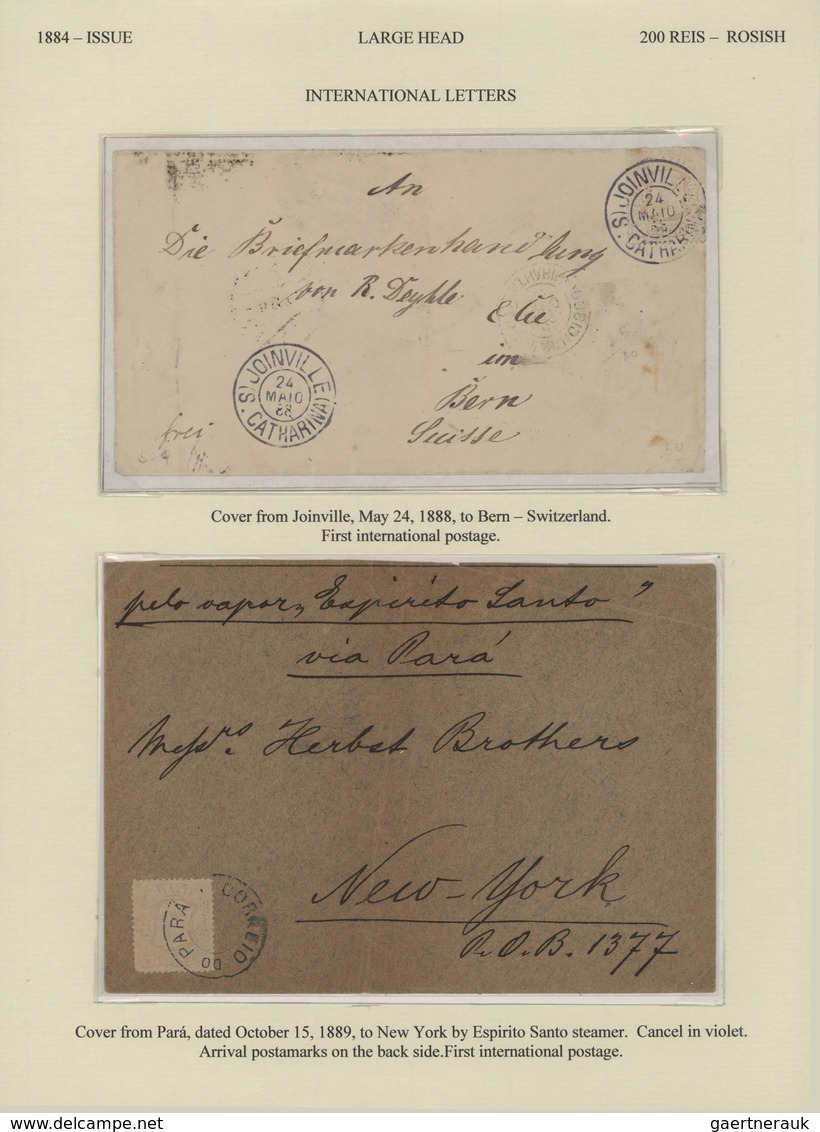 1884 – ISSUE LARGE HEAD 200 REIS – ROSISH
INTERNATIONAL LETTERS
An
Die Briefmarkenhandlung
von R. Deyhle
& Cie
im
Bern
Suisse
frei
JOINVILLE
24
MAIO
88
(S. CATHARINA)
JOINVILLE
24
MAIO
88
(S. CATHARINA)
Cover from Joinville, May 24, 1888, to Bern – Switzerland.
First international postage.
pelo vapor „Espirito Santo”
via Pará
Messrs. Herbst Brothers
New-York
P.O.B. 1377
CORREIO DO PARÁ
Cover from Pará, dated October 15, 1889, to New York by Espirito Santo steamer. Cancel in violet.
Arrival postamarks on the back side.First international postage.
www.delcampe.net
gaertnerauk